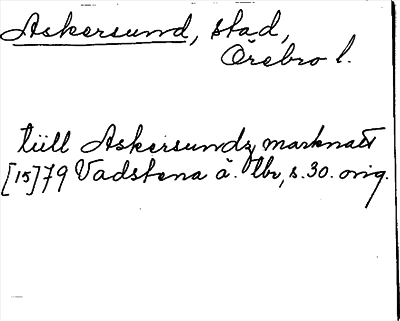 Askersund, stad,
Örebro l.
tüll Askersundz marknatt
[15]79 Vadstena ä. tbr, s. 30. orig.